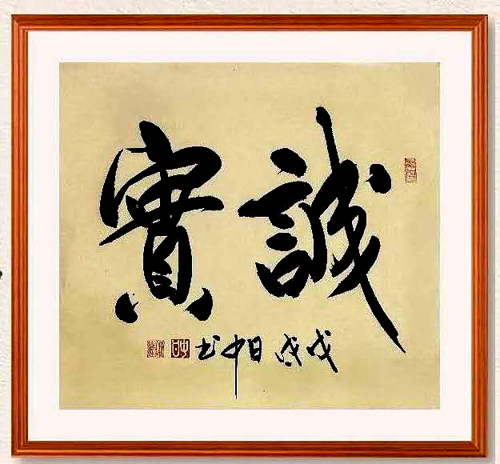 誠實
戊戌日中书